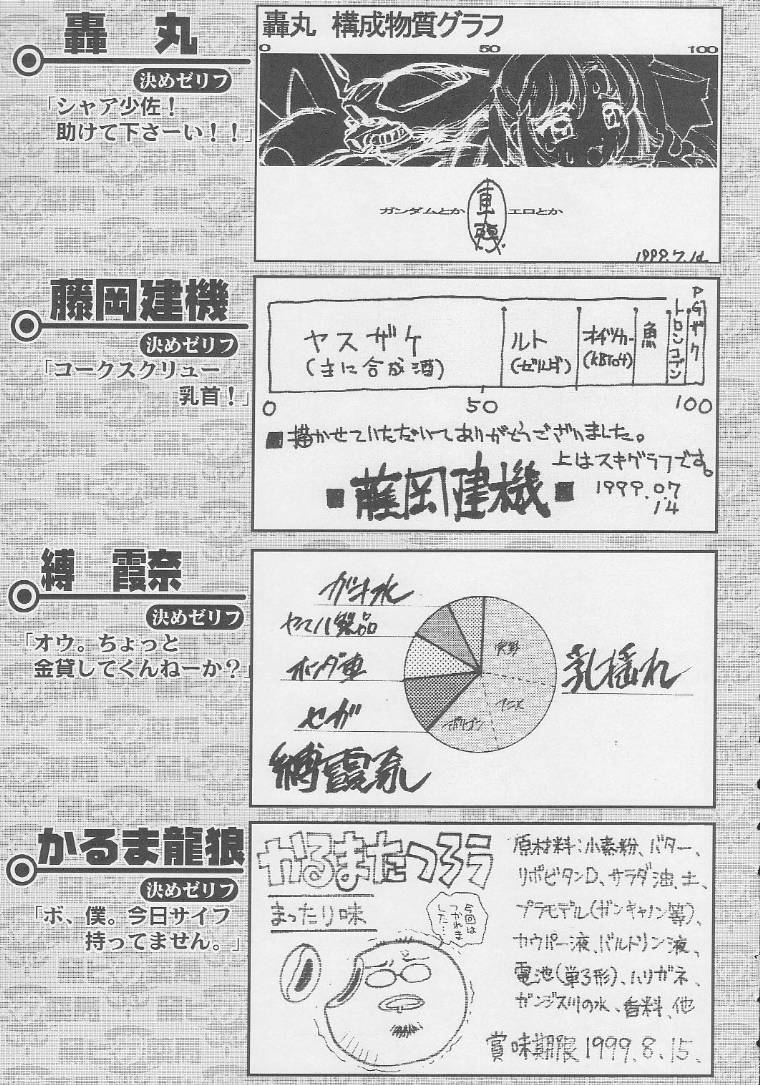 轟丸
決めゼリフ
「シャア少佐！
助けて下さーい！！」
轟丸 構成物質グラフ
0 50 100
ガンダムとか
エロとか
藤岡建機
決めゼリフ
「コークスクリュー
乳首！」
ヤスザケ
(主に合成酒)
ルト
(ゼルダ)
魚
トロンコブン
PGザク
0 50 100
■描かせていただいてありがとうございました。
上はスキグラフです。
■藤岡建機■ 1999.07
14
縛 霞奈
決めゼリフ
「オウ。ちょっと
金貸してくんねーか？」
ガブ水
ヤマハ製品
ホンダ車
セガ
実野
アニメ
ポリゴン
乳揺れ
縛霞奈
かるま龍狼
決めゼリフ
「ボ、僕。今日サイフ
持ってません。」
かるまたつろう
まったり味
今回は
つかれま
した…
原材料：小麦粉、バター、
リポビタンD、サラダ油、土、
プラモデル(ガンキャノン等)、
カウパー液、バルトリン液、
電池(単3形)、ハリガネ、
ガンジス川の水、香料、他
賞味期限1999.8.15.